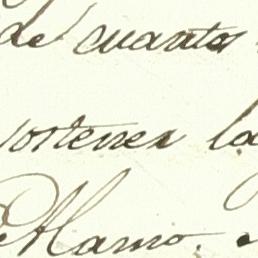 de cuantos
sostener la
Alamo.